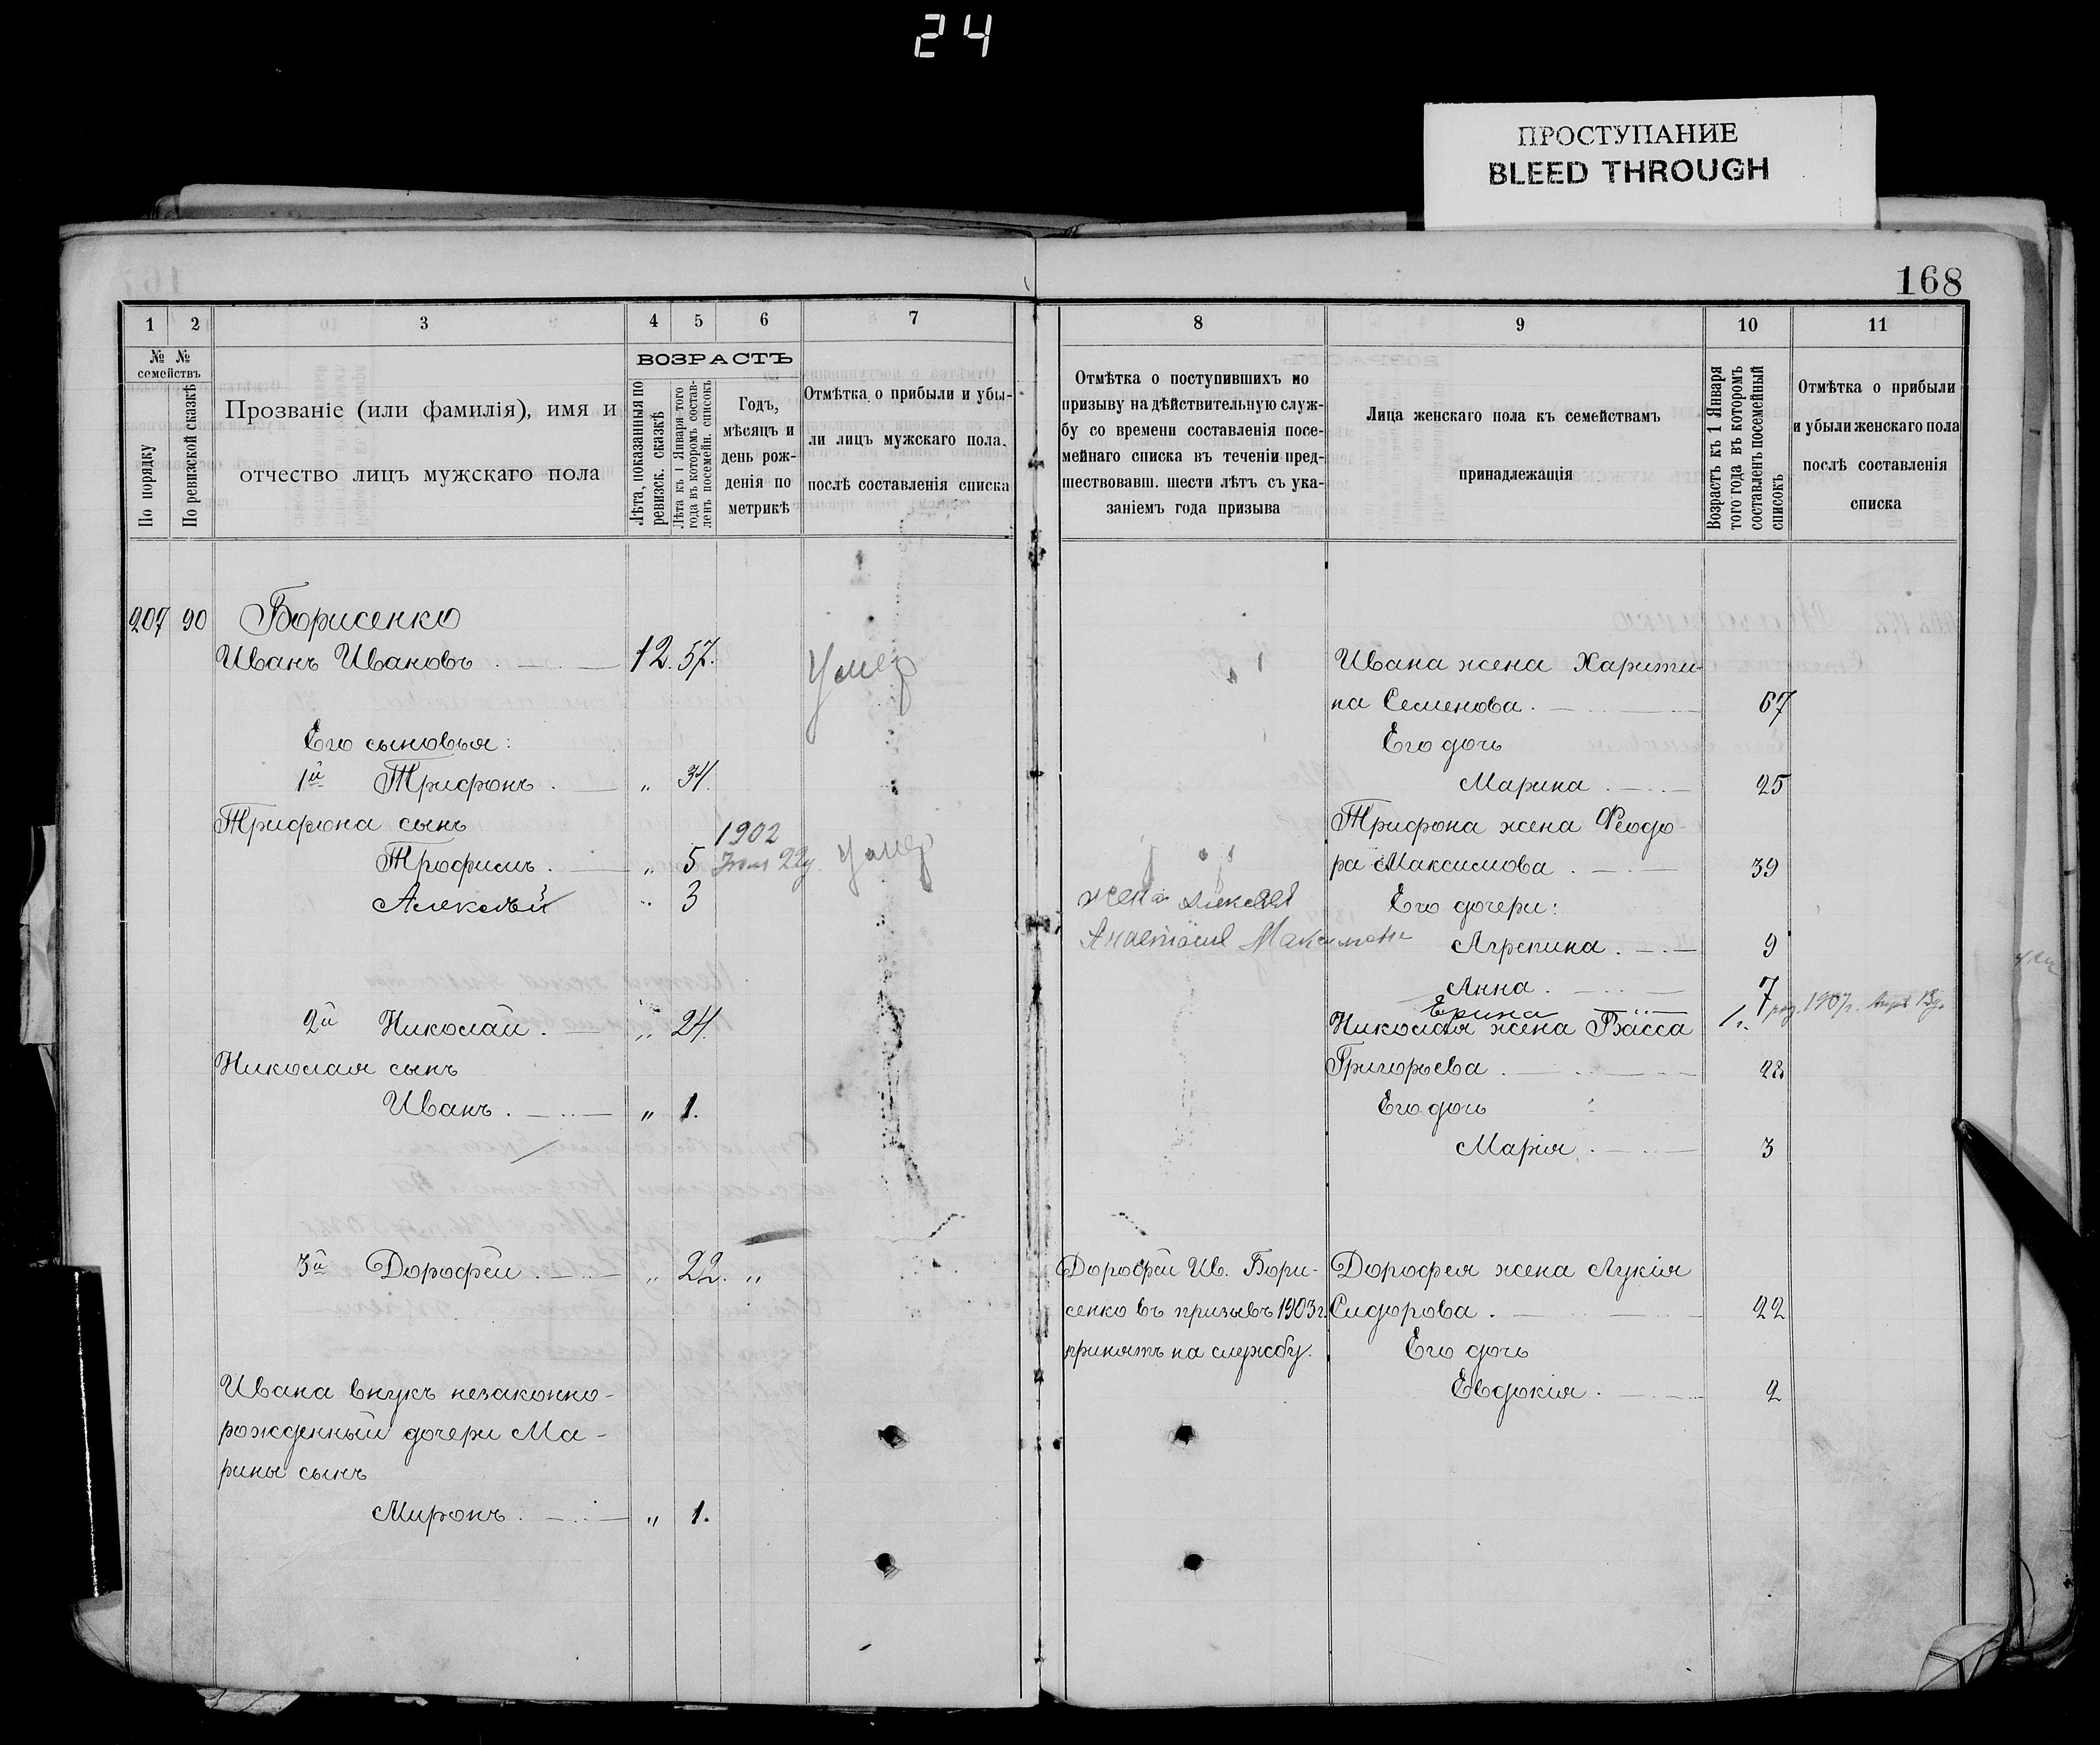 24
ПРОСТУПАНИЕ
BLEED THROUGH
168
1 2 3 4 5 6 7
№ № семействъ
По порядку
По ревизской сказкѣ
Прозваніе (или фамилія), имя и
отчество лицъ мужскаго пола
ВОЗРАСТЪ
Лѣта, показанныя по
ревизск. сказкѣ
Лѣта къ 1 Января того
года въ которомъ состав-
ленъ посемейн. списокъ
Годъ,
мѣсяцъ и
день рож-
денія по
метрикѣ
Отмѣтка о прибыли и убы-
ли лицъ мужскаго пола,
послѣ составленія списка
8 9 10 11
Отмѣтка о поступившихъ по
призыву на дѣйствительную служ-
бу со времени составленія посе-
мейнаго списка въ теченіи пред-
шествовавш. шести лѣтъ съ ука-
заніемъ года призыва
Лица женскаго пола къ семействамъ
принадлежащія
Возрастъ къ 1 Января
того года въ которомъ
составленъ посемейный
списокъ
Отмѣтка о прибыли
и убыли женскаго пола
послѣ составленія
списка
207 90 Борисенко
Иванъ Ивановъ . 12. 57. Умер
Его сыновья:
1й Трифонъ . „ 34.
Трифона сынъ
1902
Трофимъ . „ 5 22 Умер
Алексѣй „ 3
2й Николай . „ 24.
Николая сынъ
Иванъ . „ 1.
3й Дорофей . „ 22. „
Ивана внукъ незаконно-
рожденный дочери Ма-
рины сынъ
Миронъ . „ 1.
жена Алексея
Анастасия Максимовн
Дорофей Ив. Бори-
сенко въ призывъ 1903 г.
принятъ на службу.
Ивана жена Харити-
на Семенова . 67
Его дочь
Марина . 25
Трифона жена Феодо-
ра Максимова . 39
Его дочери:
Агрепина . 9
Анна . 7
Ерина 1 г. род. 1907 г.
Николая жена Васса
Григорьева . 22
Его дочь
Марія . 3
Дорофея жена Лукія
Сидорова . 22
Его дочь
Евдокія . 2